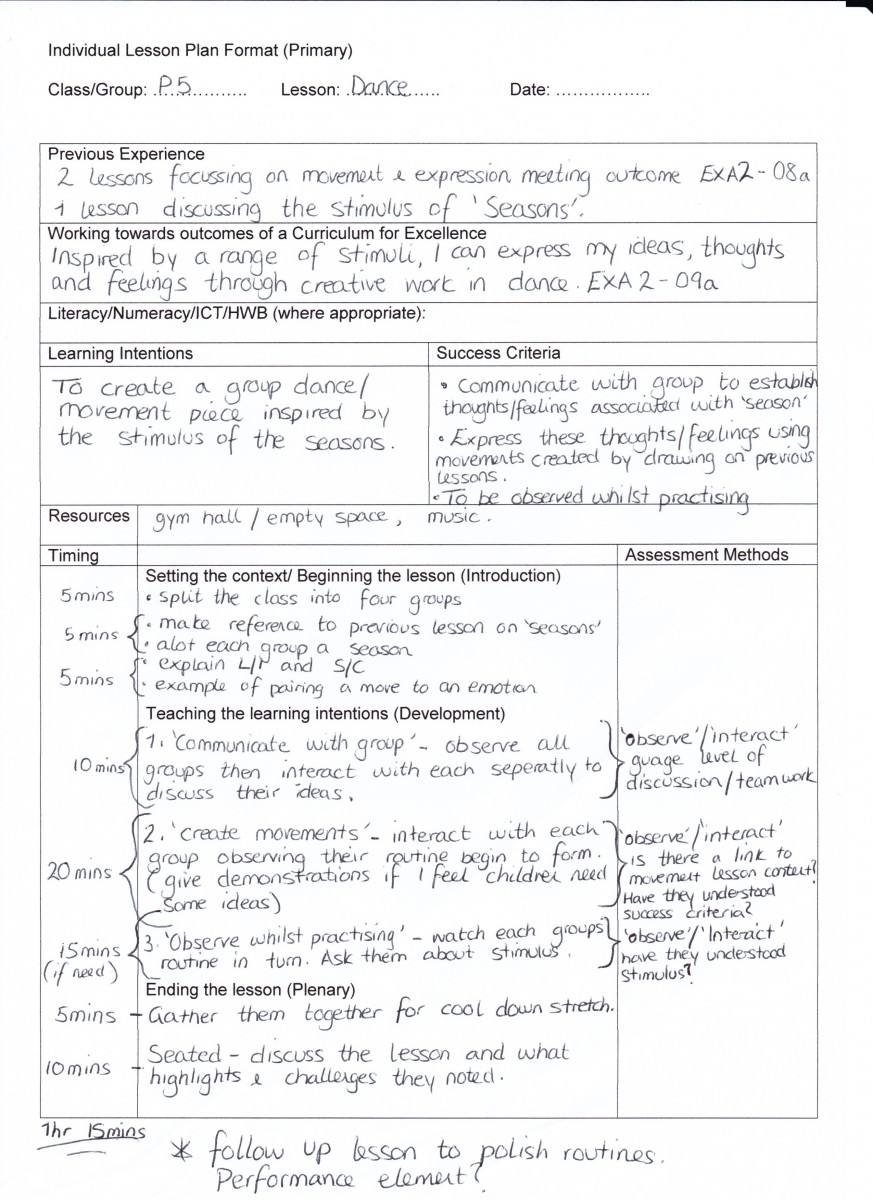 Individual Lesson Plan Format (Primary)
Class/Group: .P.5.......... Lesson: .Dance...... Date: .................
Previous Experience
2 lessons focussing on movement & expression meeting outcome EXA2-08a
1 lesson discussing the stimulus of 'Seasons'.
Working towards outcomes of a Curriculum for Excellence
Inspired by a range of stimuli, I can express my ideas, thoughts
and feelings through creative work in dance. EXA 2-09a
Literacy/Numeracy/ICT/HWB (where appropriate):
Learning Intentions
To create a group dance/
movement piece inspired by
the stimulus of the seasons.
Success Criteria
• Communicate with group to establish
thoughts/feelings associated with 'season'
• Express these thoughts/feelings using
movements created by drawing on previous
lessons.
• To be observed whilst practising
Resources gym hall / empty space, music.
Timing
Assessment Methods
Setting the context/ Beginning the lesson (Introduction)
5mins • split the class into four groups
5mins • make reference to previous lesson on 'seasons'
• alot each group a season
5mins • explain L/I and S/C
• example of pairing a move to an emotion
Teaching the learning intentions (Development)
10mins 1. 'Communicate with group' - observe all
groups then interact with each seperatly to
discuss their ideas.
'observe'/'interact'
guage level of
discussion/teamwork
20 mins 2. 'create movements' - interact with each
group observing their routine begin to form.
(give demonstrations if I feel children need
some ideas)
'observe'/'interact'
is there a link to
movement lesson content?
Have they understood
success criteria?
15mins (if need) 3. 'Observe whilst practising' - watch each groups
routine in turn. Ask them about stimulus.
'observe'/'Interact'
have they understood
stimulus?
Ending the lesson (Plenary)
5mins - Gather them together for cool down stretch.
10mins - Seated - discuss the lesson and what
highlights & challenges they noted.
1hr 15mins
* follow up lesson to polish routines.
Performance element?